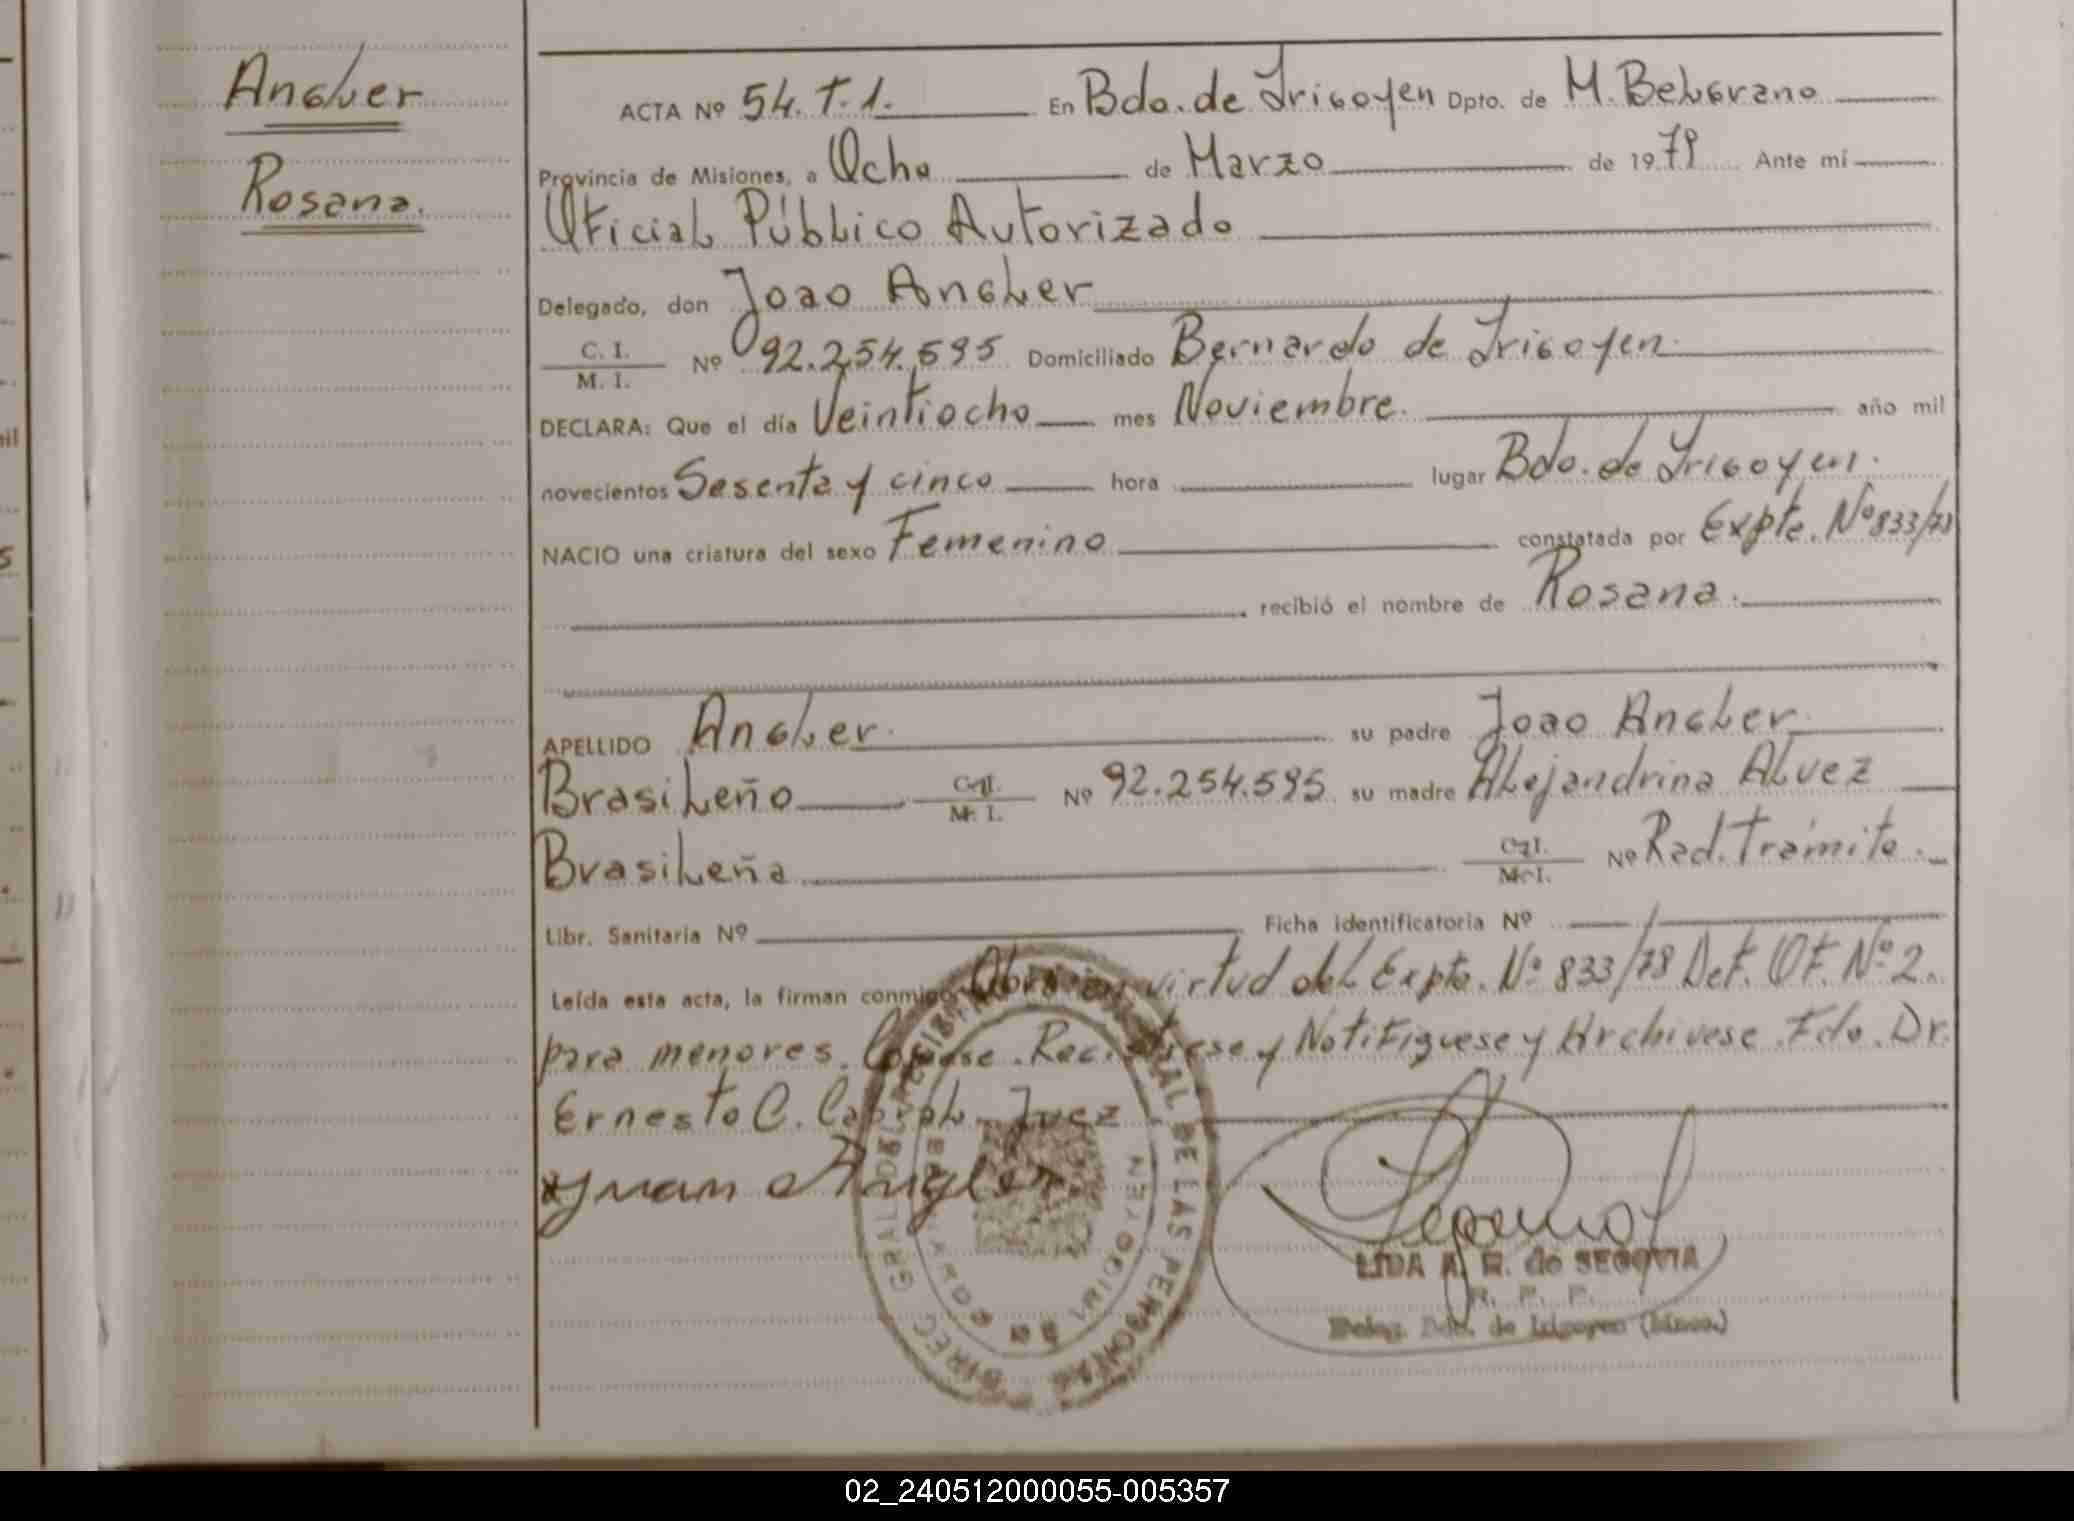 Angler
Rosana.
ACTA Nº 54.T.1. En Bdo. de Irigoyen Dpto. de M. Belgrano
Provincia de Misiones, a Ocho de Marzo de 1979 Ante mí
Oficial Público Autorizado
Delegado, don Joao Angler
C. I.
M. I. Nº 92.254.595 Domiciliado Bernardo de Irigoyen
DECLARA: Que el día Veintiocho mes Noviembre. año mil
novecientos Sesenta y cinco hora lugar Bdo. de Irigoyen.
NACIO una criatura del sexo Femenino constatada por Expte. Nº 833/78
recibió el nombre de Rosana.
APELLIDO Angler. su padre Joao Angler
Brasileño C. I. M. I. Nº 92.254.595 su madre Alejandrina Alvez
Brasileña C. I. M. I. Nº Rad. Trámite.
Libr. Sanitaria Nº Ficha identificatoria Nº
Leída esta acta, la firman conmigo virtud del Expte. Nº 833/78 Def. Of. Nº 2.
para menores. Regístrese y Notifíquese y Archívese. Fdo. Dr.
Ernesto C. Juez
Juan Angler
DIREC. GRAL. DEL REGISTRO DE LAS PERSONAS
BDO. IRIGOYEN
LIDA A. R. de SEGOVIA
R. P. P.
Deleg. Bdo. de Irigoyen (Mnes.)
02_240512000055-005357